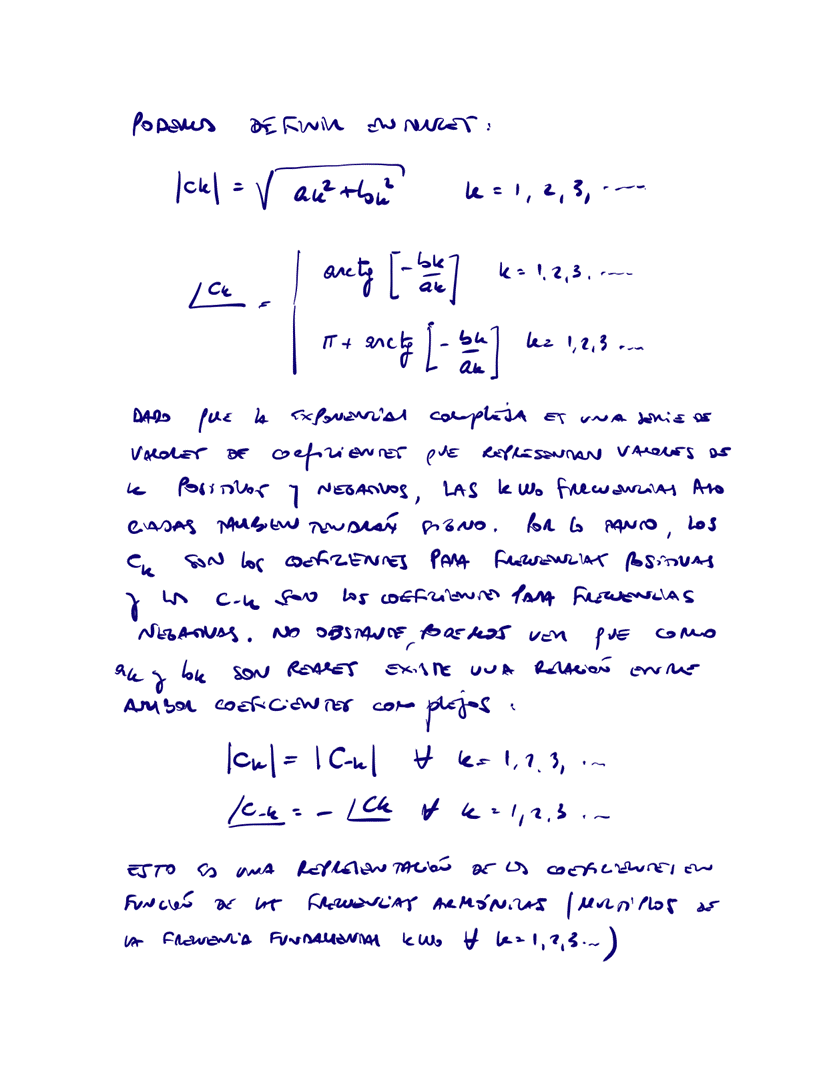 PODEMOS DEFINIR ENTONCES:
|Ck| = √(ak² + bk²)    k = 1, 2, 3, ....
∠Ck = | arctg [-bk/ak]    k = 1, 2, 3, ....
π + arctg [-bk/ak]    k = 1, 2, 3 ...
DADO QUE LA EXPONENCIAL COMPLEJA ES UNA SERIE DE
VALORES DE COEFICIENTES QUE REPRESENTAN VALORES DE
k POSITIVOS Y NEGATIVOS, LAS kWo FRECUENCIAS ASO
CIADAS TAMBIEN TENDRÁN SIGNO. POR LO TANTO, LOS
Ck SON LOS COEFICIENTES PARA FRECUENCIAS POSITIVAS
Y LOS C-k SON LOS COEFICIENTES PARA FRECUENCIAS
NEGATIVAS. NO OBSTANTE, PODEMOS VER QUE COMO
ak y bk SON REALES EXISTE UNA RELACIÓN ENTRE
AMBOS COEFICIENTES COMPLEJOS:
|Ck| = |C-k|  ∀  k = 1, 2, 3, ...
∠C-k = - ∠Ck  ∀  k = 1, 2, 3 ...
ESTO ES UNA REPRESENTACIÓN DE LOS COEFICIENTES EN
FUNCIÓN DE LAS FRECUENCIAS ARMÓNICAS (MULTIPLOS DE
LA FRECUENCIA FUNDAMENTAL kWo ∀ k = 1, 2, 3 ...)